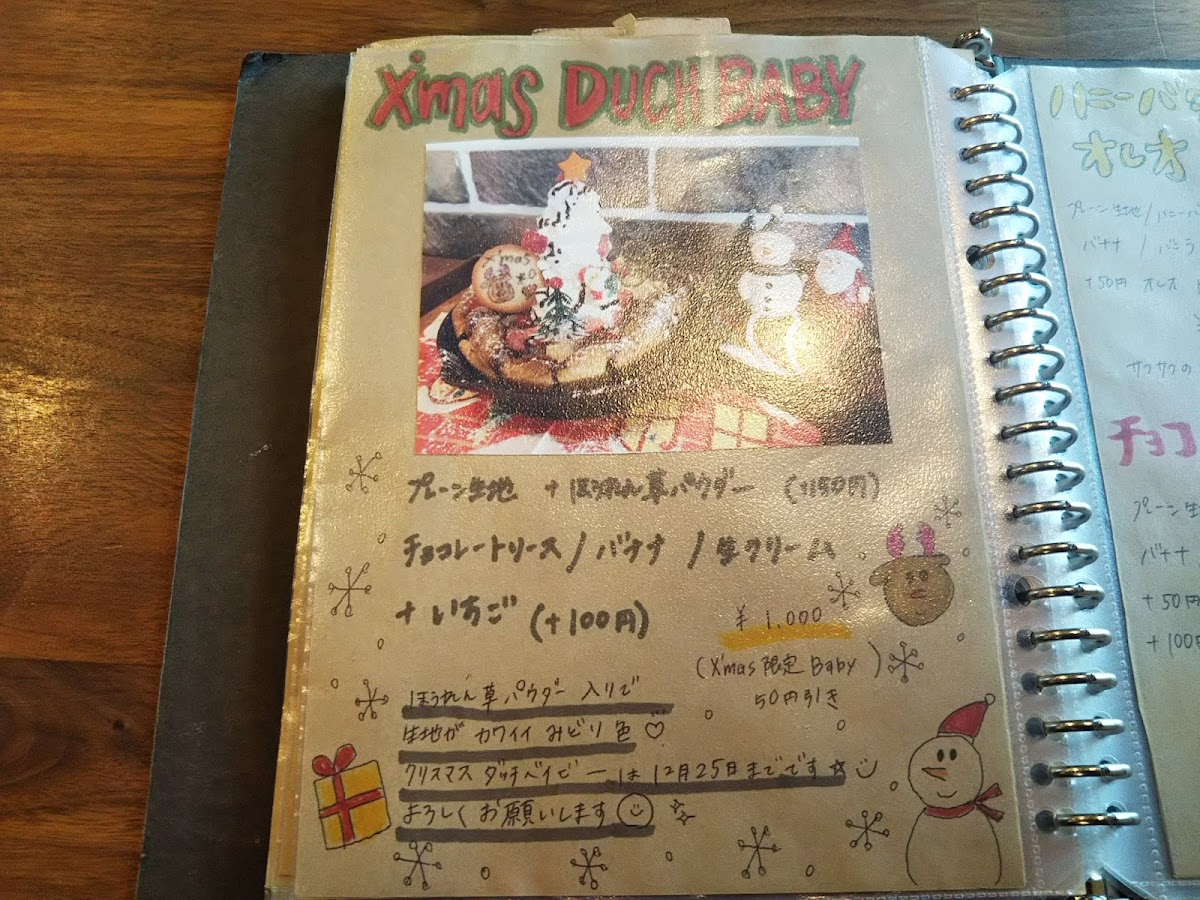 X'mas DUCH BABY
X'mas
プレーン生地 +ほうれん草パウダー (+150円)
チョコレートソース/バナナ/生クリーム
+いちご (+100円)
¥1.000
(X'mas限定 Baby)
50円引き
ほうれん草パウダー入りで
生地が カワイイ みどり色♡
クリスマス ダッチベイビーは 12月25日までです☆
よろしくお願いします
ハニーバ
オレオ
プレーン生地/ハニー
バナナ / バ
+50円 オレオ
サクサクの
チョコ
プレーン生
バナナ
+50円
+100